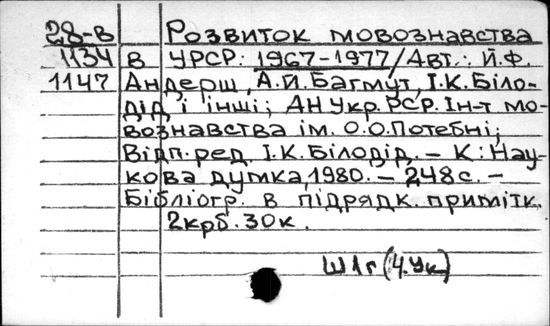 28-в Розвиток мовознавства
1134 в УРСР: 1967-1977/Авт.: Й.Ф.
1147 Андерш, А.Й. Багмут, І.К. Біло-
дід і інші; АН Укр. РСР. Ін-т мо-
вознавства ім. О.О. Потебні;
Відп. ред. І.К. Білодід. – К: Нау-
кова думка, 1980. – 248 с. –
Бібліогр. в підрядк. приміtк.
2крб. 30к.
Ш1г (4.Ук)